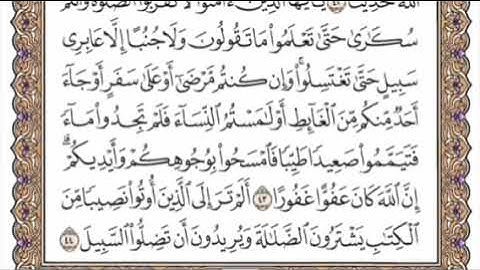 اللَّهَ حَدِيثًا ٤٢ يَا أَيُّهَا الَّذِينَ آمَنُوا لَا تَقْرَبُوا الصَّلَوٰةَ وَأَنتُمْ
سُكَٰرَىٰ حَتَّىٰ تَعْلَمُوا۟ مَا تَقُولُونَ وَلَا جُنُبًا إِلَّا عَابِرِى
سَبِيلٍ حَتَّىٰ تَغْتَسِلُوا۟ ۚ وَإِن كُنتُم مَّرْضَىٰٓ أَوْ عَلَىٰ سَفَرٍ أَوْ جَآءَ
أَحَدٌ مِّنكُم مِّنَ ٱلْغَآئِطِ أَوْ لَٰمَسْتُمُ ٱلنِّسَآءَ فَلَمْ تَجِدُوا۟ مَآءً
فَتَيَمَّمُوا۟ صَعِيدًا طَيِّبًا فَٱمْسَحُوا۟ بِوُجُوهِكُمْ وَأَيْدِيكُمْ ۗ
إِنَّ ٱللَّهَ كَانَ عَفُوًّا غَفُورًا ٤٣ أَلَمْ تَرَ إِلَى ٱلَّذِينَ أُوتُوا۟ نَصِيبًا مِّنَ
ٱلْكِتَٰبِ يَشْتَرُونَ ٱلضَّلَٰلَةَ وَيُرِيدُونَ أَن تَضِلُّوا۟ ٱلسَّبِيلَ ٤٤